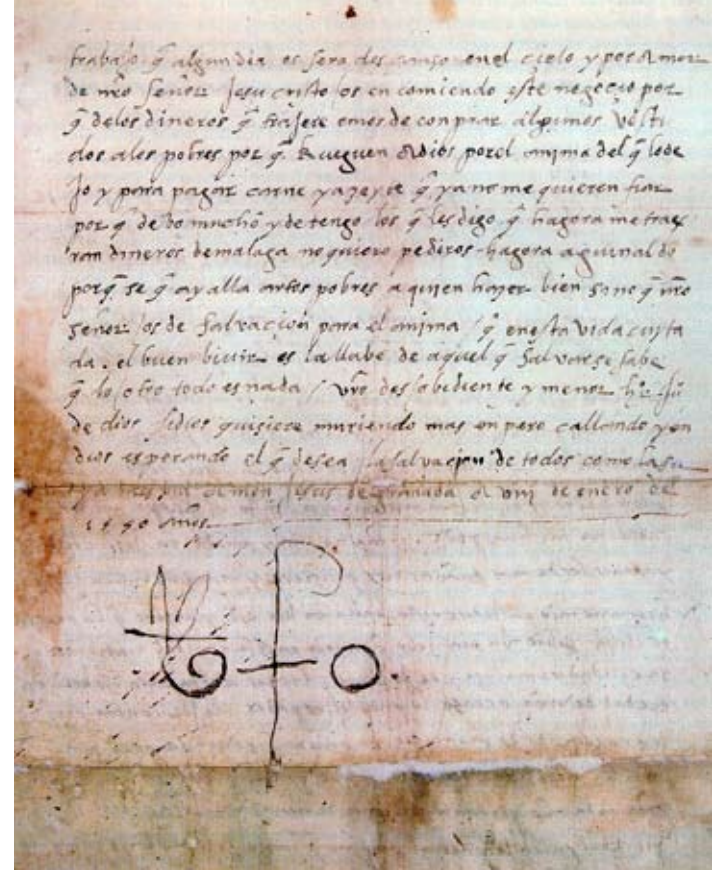 trabajo q̃ algun dia os sera descanso en el cielo y por amor
de nr̃o señor Jesu cristo os en comiendo este negocio por
q̃ delos dineros q̃ trajere emos de conprar algunos vesti
dos alos pobres por q̃ Rueguen a dios por el anima del q̃ lo de
jo y para pagar carne y azeyte q̃ ya no me quieren fiar
por q̃ debo mucho y detengo los q̃ les digo q̃ hagora me trae
ran dineros demalaga no quiero pediros hagora aguinaldo
porq̃ se q̃ ay alla artos pobres a quien hazer bien sino q̃ nr̃o
señor os de salvacion para el anima / q̃ en esta vida cuyta
da. el buen bivir es la llabe de aquel q̃ salvarse sabe
q̃ lo otro todo es nada / vr̃o desobediente y menor hº Juº
de dios si dios quisiere muriendo mas enpero callando y en
dios esperando el q̃ desea la salvacion de todos como la su
ya amen Jesus de granada a viii de enero del
1550 años